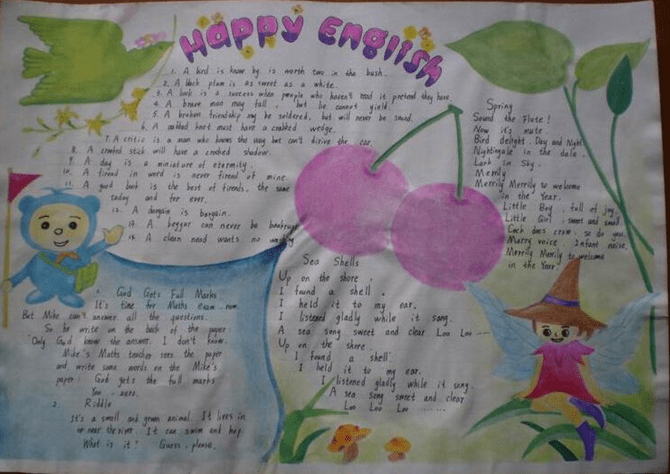 Happy English
1. A bird is know by is worth two in the bush.
2. A black plum is as sweet as a white.
3. A book is a success when people who haven't read it pretend they have.
4. A brave man may fall, but he cannot yield.
5. A broken friendship may be soldered, but will never be sound.
6. A crabbed knot must have a crabbed wedge.
7. A critic is a man who knows the way but can't drive the car.
8. A crooked stick will have a crooked shadow.
9. A day is a miniature of eternity.
10. A friend in word is never friend of mine.
11. A good book is the best of friends, the same
today and for ever.
12. A bargain is bargain.
13. A beggar can never be bankrupt
14. A clean hand wants no washing
God Gets Full Marks
It's time for Maths exam now.
But Mike can't answer all the questions.
So he write on the back of the paper
"Only God know the answer. I don't know.
Mike's Maths teacher sees the paper
and write some words on the Mike's
paper: God gets the full marks
You - zero.
2. Riddle
It's a small and green animal. It lives in
or near the river. It can swim and hop.
What is it? Guess, please.
Sea Shells
Up on the shore,
I found a shell,
I held it to my ear.
I listened gladly while it song.
A sea song sweet and clear Loo Loo ---
Up on the shore
I found a shell
I held it to my ear
I listened gladly while it song.
A sea song sweet and clear
Loo Loo Loo .......
Spring
Sound the Flute!
Now it's mute.
Bird delight. Day and Night
Nightingale in the dale.
Lark in Sky.
Merrily
Merrily Merrily to welcome
in the Year.
Little Boy, full of joy.
Little Girl sweet and small
Cock does crow, so do you.
Merry voice. Infant noise.
Merrily Merrily to welcome
in the Year.